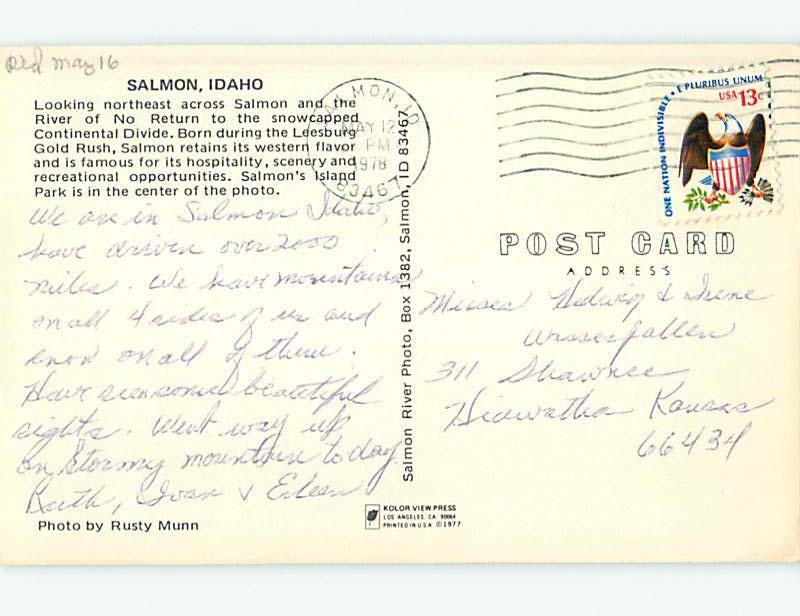 Rcd May 16
SALMON, IDAHO
Looking northeast across Salmon and the
River of No Return to the snowcapped
Continental Divide. Born during the Leesburg
Gold Rush, Salmon retains its western flavor
and is famous for its hospitality, scenery and
recreational opportunities. Salmon's Island
Park is in the center of the photo.
We are in Salmon Idaho,
have driven over 2000
miles. We have mountains
on all 4 sides of us and
snow on all of them.
Have seen some beautiful
sights. Went way up
on Stormy mountain today.
Ruth, Ivan & Eileen
Photo by Rusty Munn
Salmon River Photo, Box 1382, Salmon, ID 83467
KOLOR VIEW PRESS
LOS ANGELES, CA. 90064
PRINTED IN U.S.A. ©1977
SALMON, ID
MAY 12
PM
1978
83467
ONE NATION INDIVISIBLE • E PLURIBUS UNUM
USA 13c
POST CARD
ADDRESS
Misses Hedwig & Irene
Wasserfallen
311 Shawnee
Hiawatha Kansas
66434